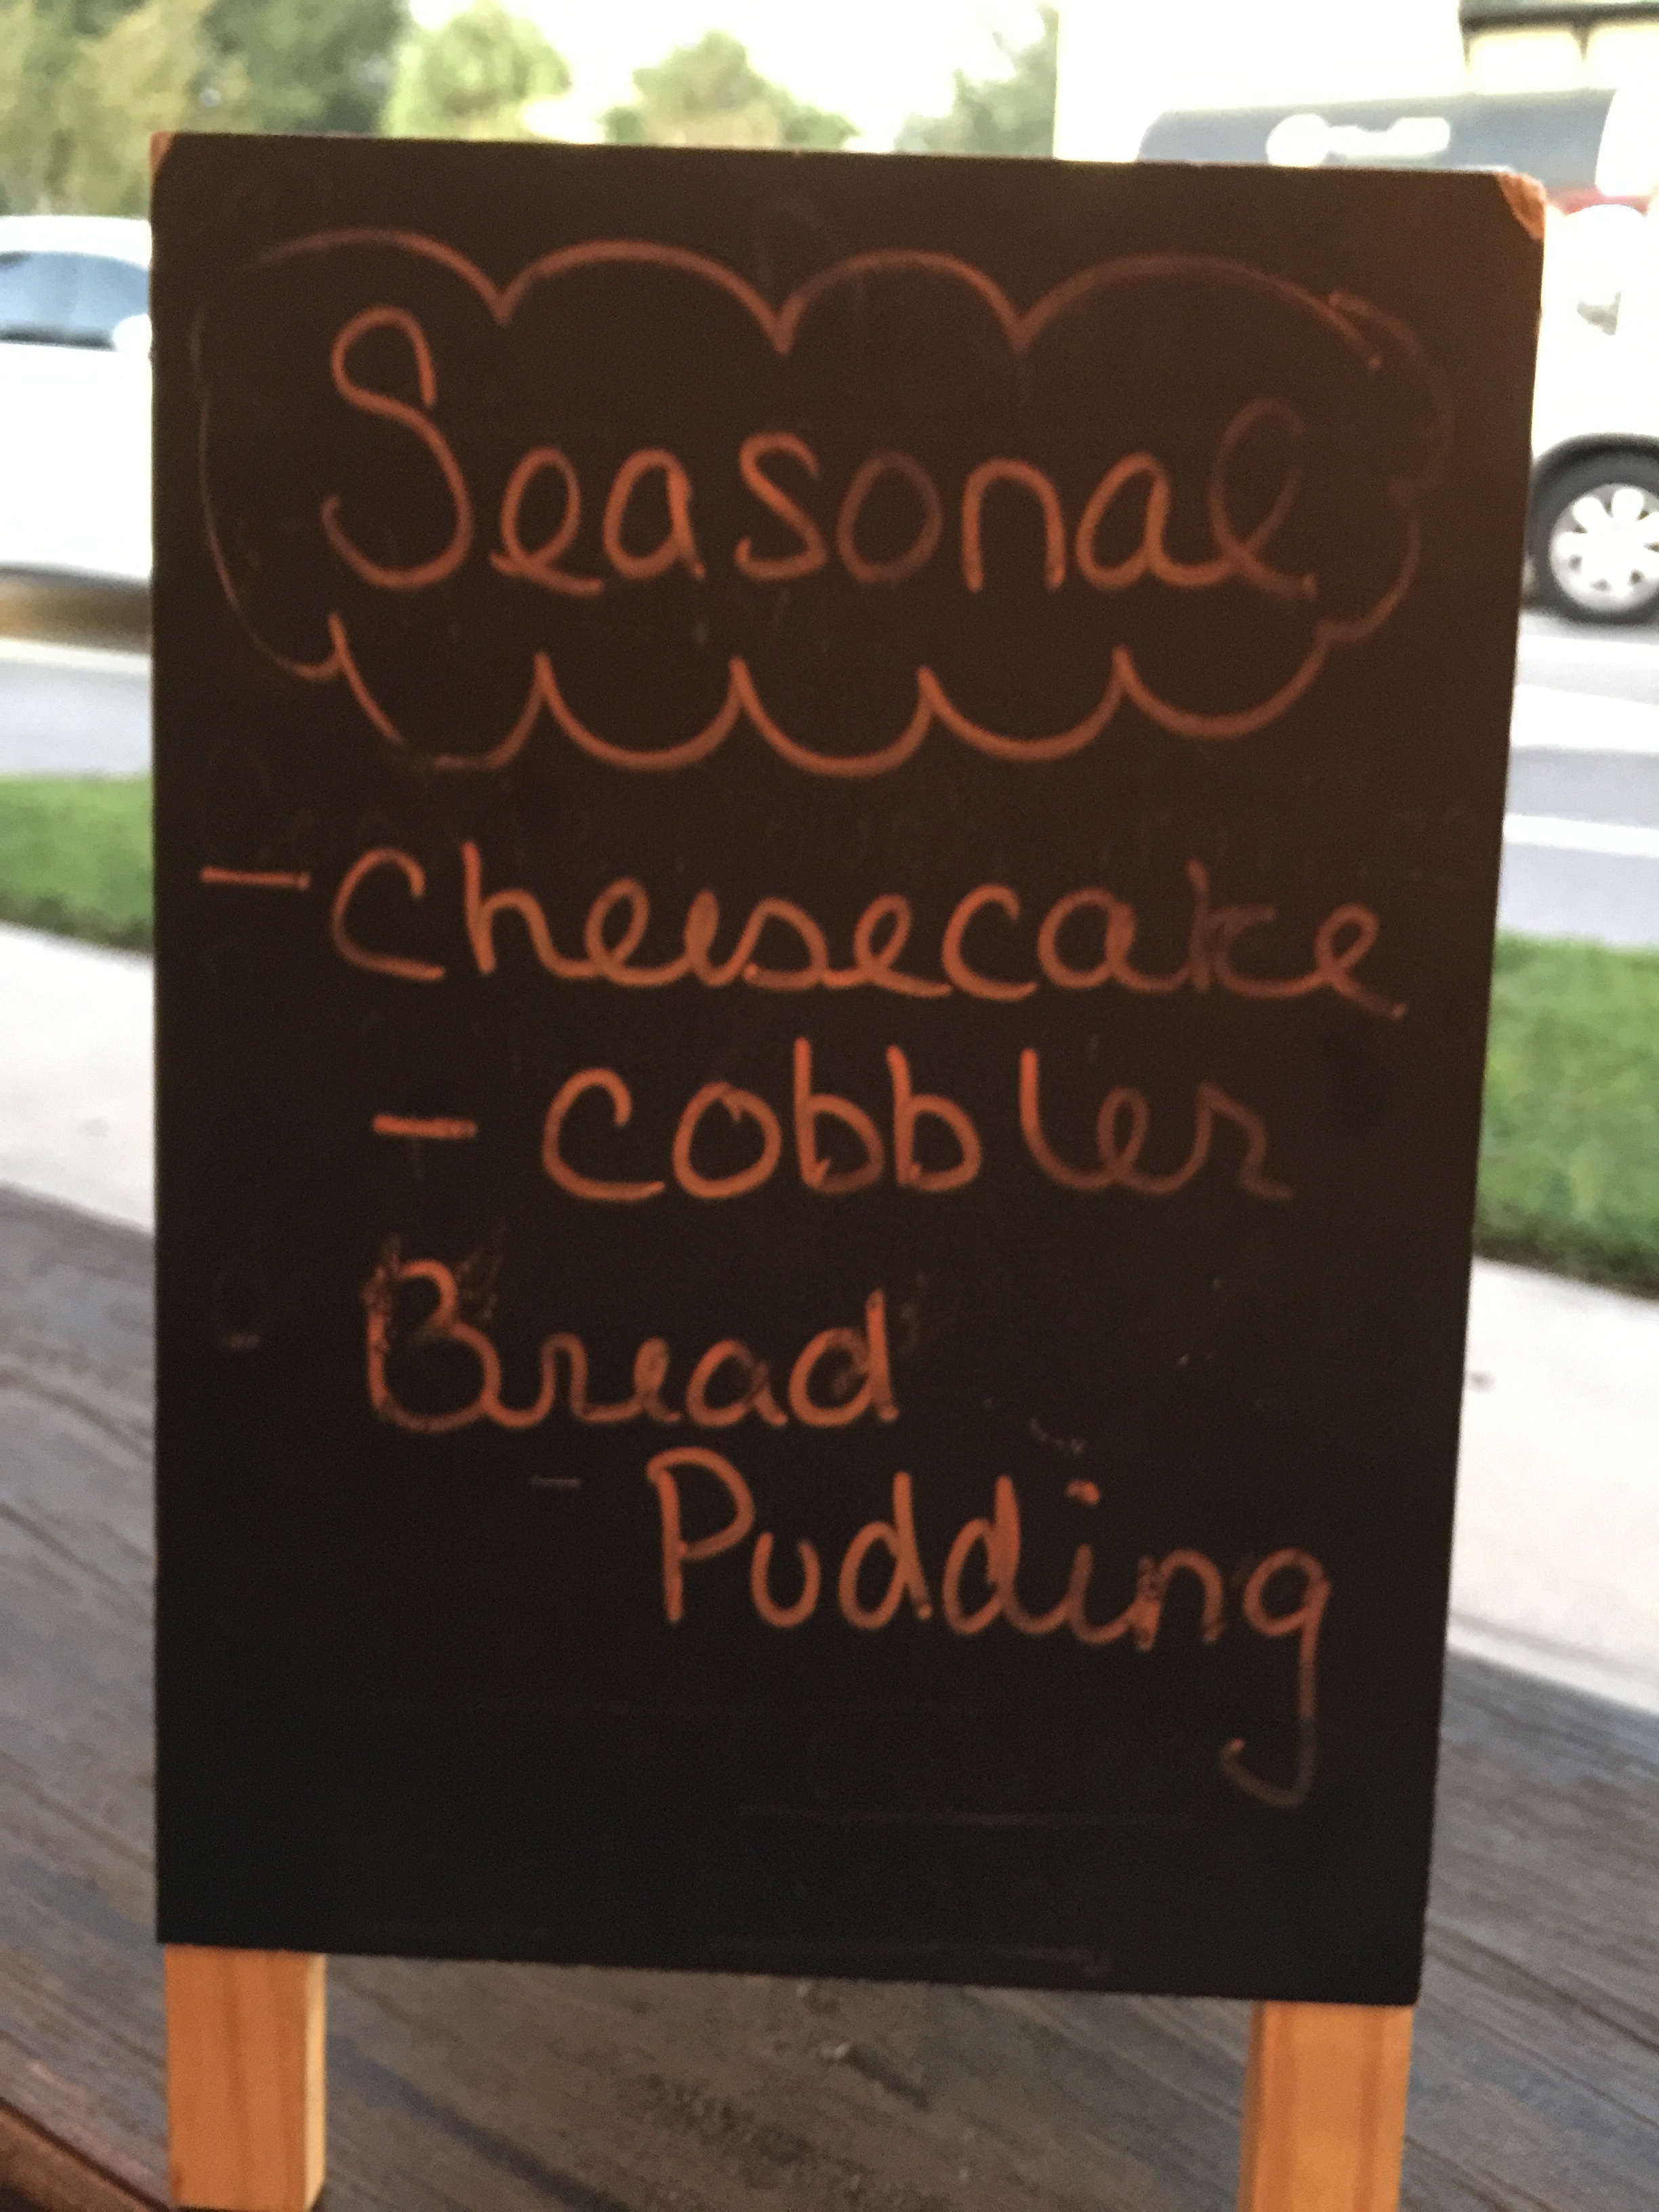 Seasonal
- Cheesecake
- Cobbler
- Bread
- Pudding